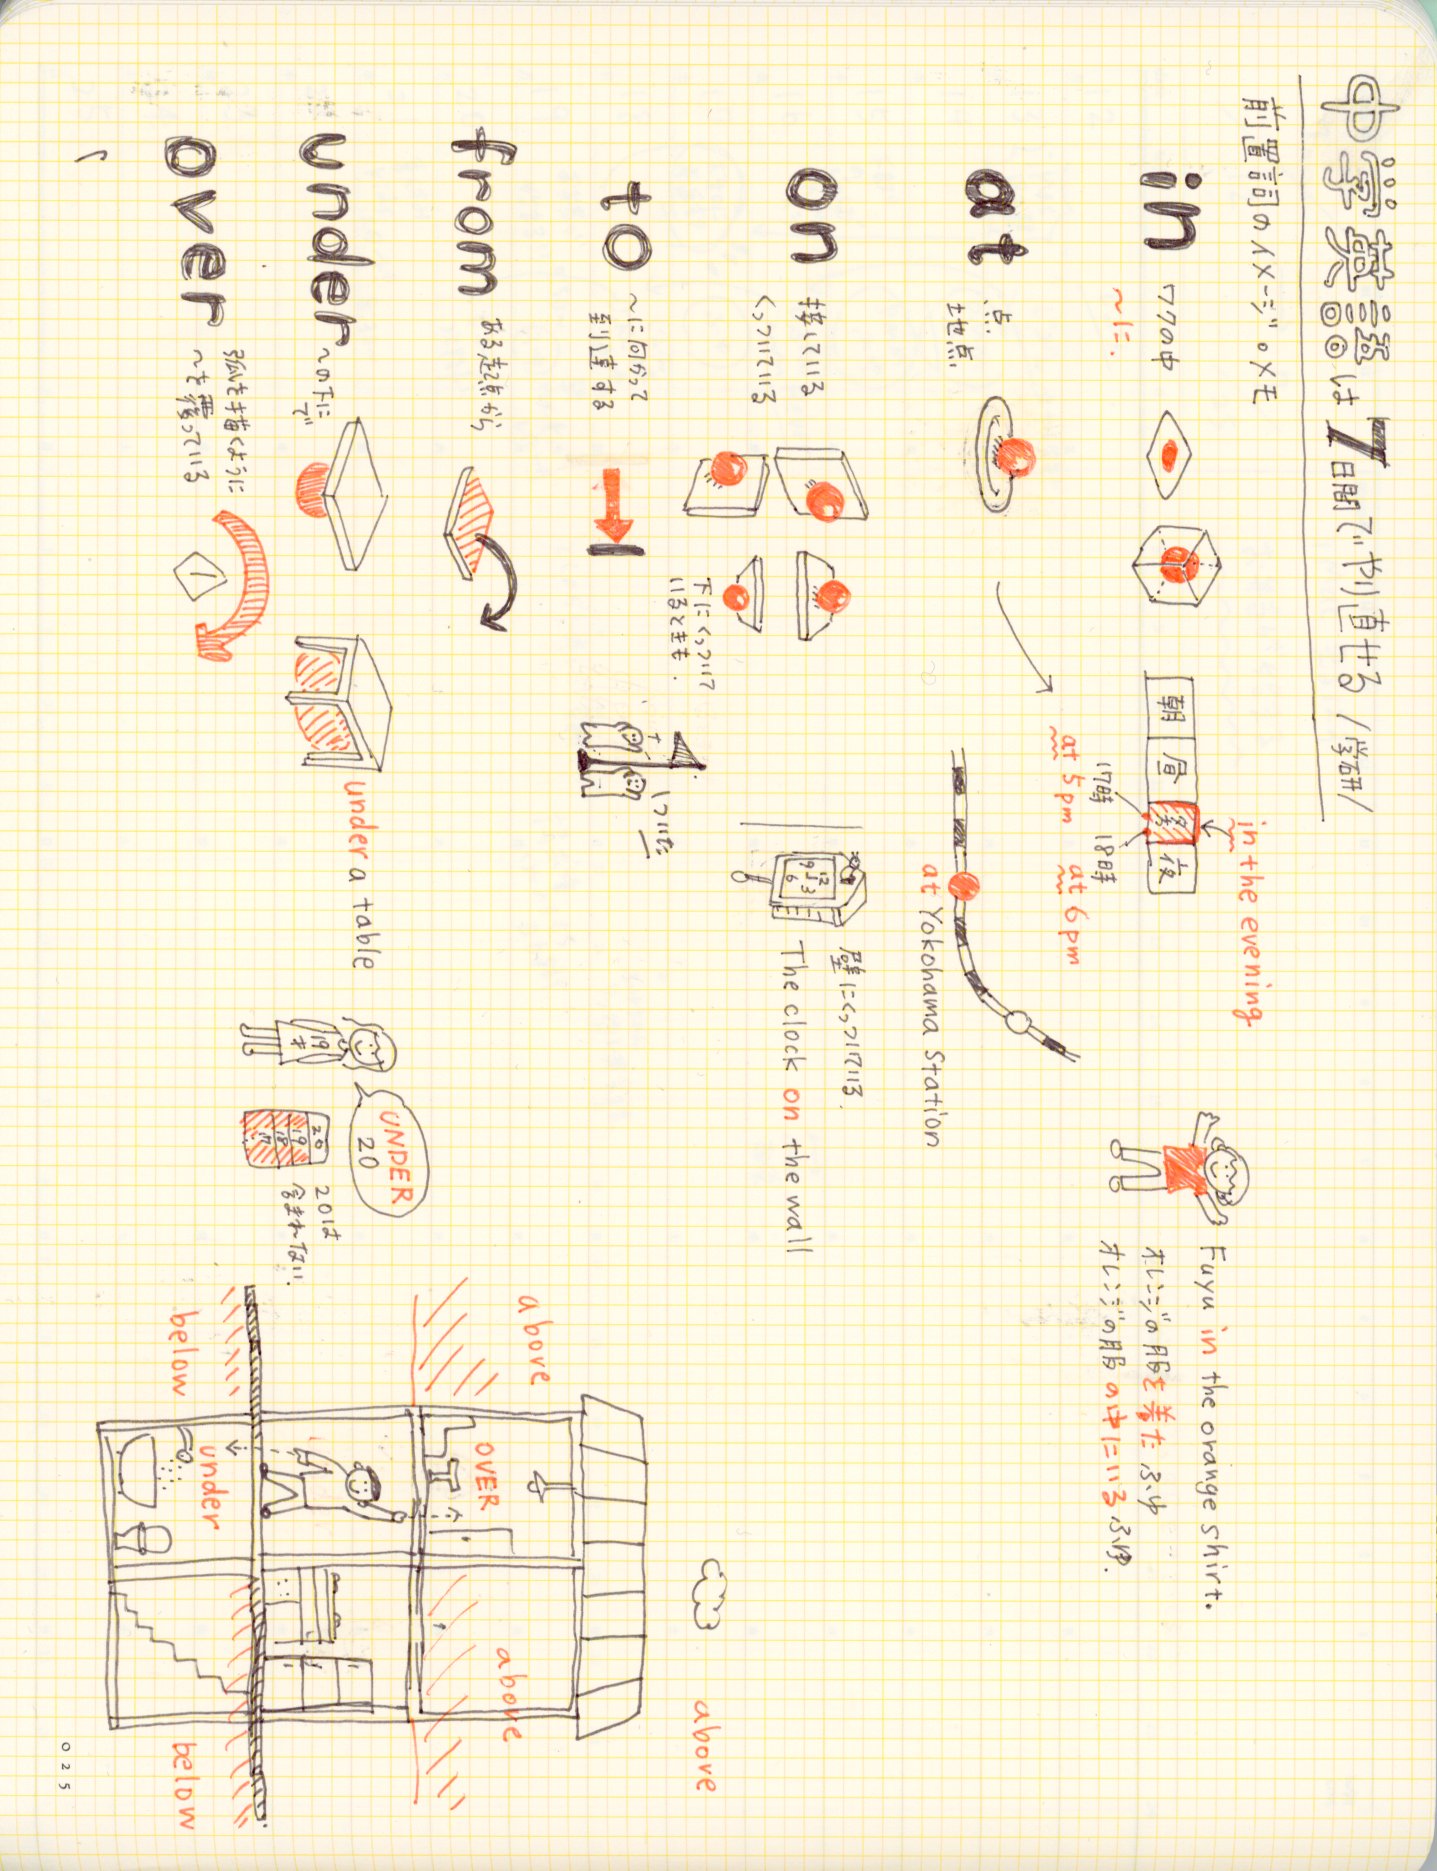 中学英語は7日間でやり直せる/学研/
前置詞のイメージ。メモ
in
ワクの中
~に.
朝 昼 夕 夜
in the evening
17時 18時
at 5pm at 6pm
Fuyu in the orange shirt.
オレンジの服を着たふゆ
オレンジの服の中にいるふゆ.
at
点.
地点.
at Yokohama Station
on
接している
くっついている
下にくっついて
いるときも.
12
9 3
6
壁にくっついている.
The clock on the wall
to
~に向かって
到達する
ついたー
from
ある起点から
under
~の下に
で
under a table
19才
UNDER
20
20
19
18
17
20は
含まれない.
over
弧を描くように
~を覆っている
above
above
above
OVER
under
below
below
025